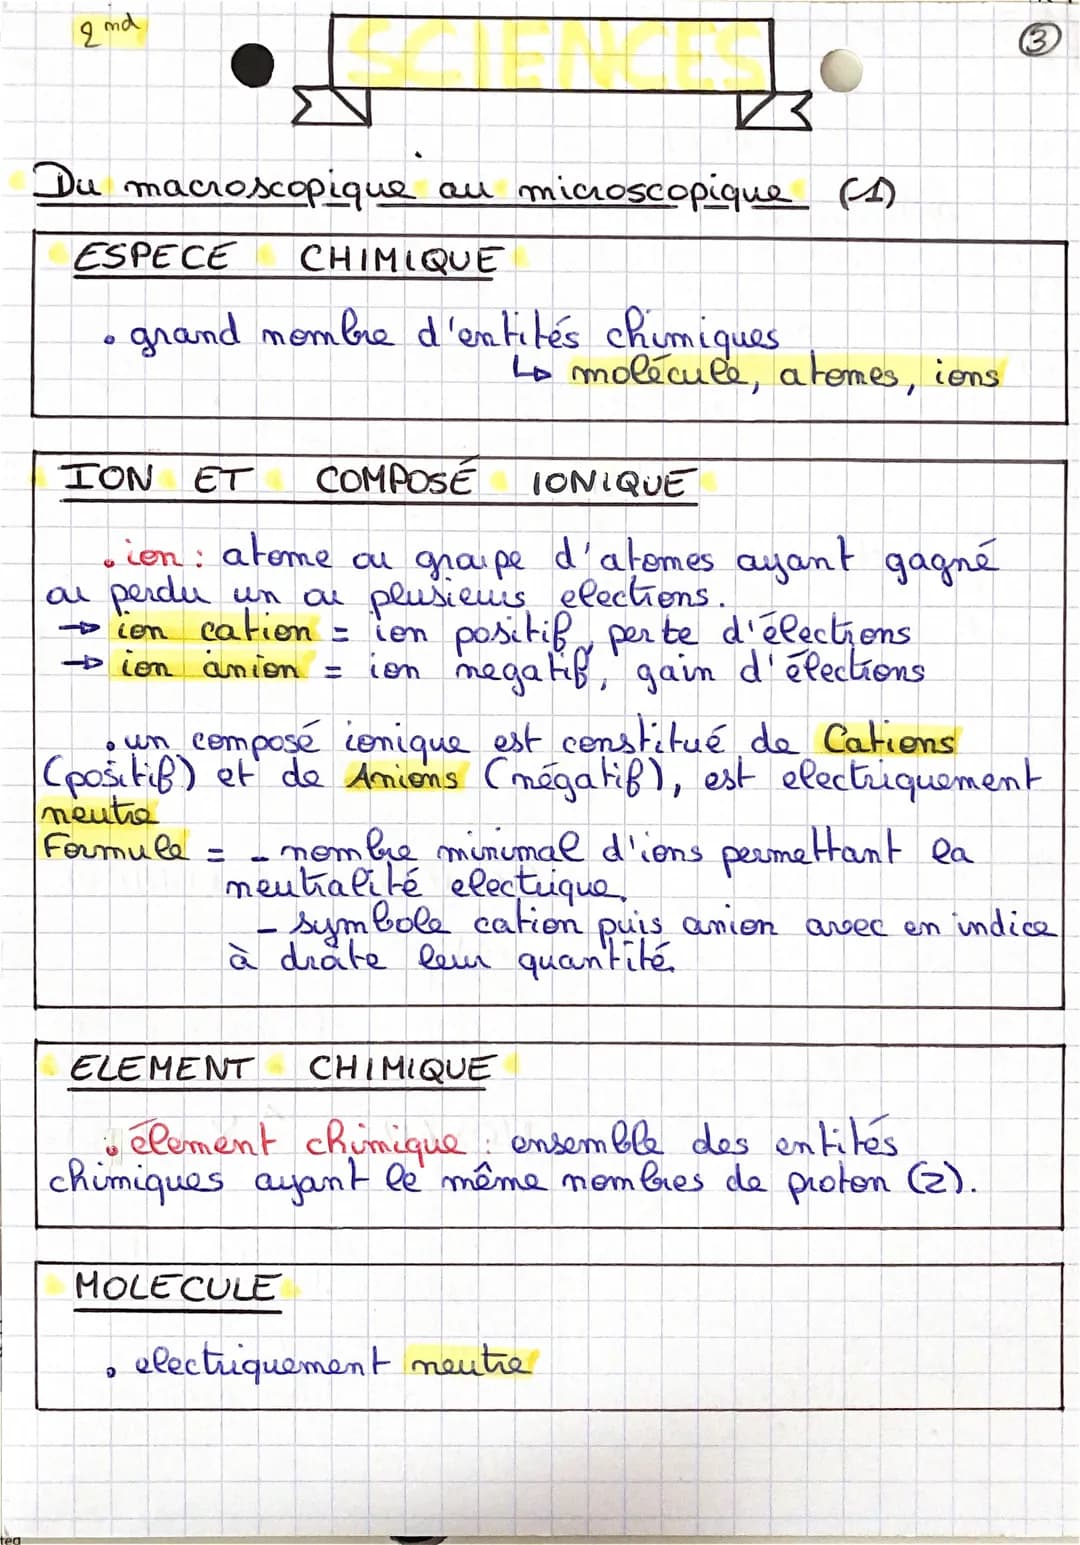 2md
SCIENCES
3
Du macroscopique au microscopique (1)
ESPECE CHIMIQUE
• grand nombre d'entités chimiques
↳ molécule, atomes, ions
ION ET COMPOSÉ IONIQUE
• ion : atome ou groupe d'atomes ayant gagné
ou perdu un ou plusieurs elections.
→ ion cation = ion positif, perte d'élections
→ ion anion = ion negatif, gain d'élections
• un composé ionique est constitué de Cations
(positif) et de Anions (négatif), est electriquement
neutre
Formule = - nombre minimal d'ions permettant la
neutralité electrique,
- symbole cation puis anion avec en indice
à droite leur quantité.
ELEMENT CHIMIQUE
• élement chimique : ensemble des entités
chimiques ayant le même nombres de proton (Z).
MOLECULE
• electriquement neutre